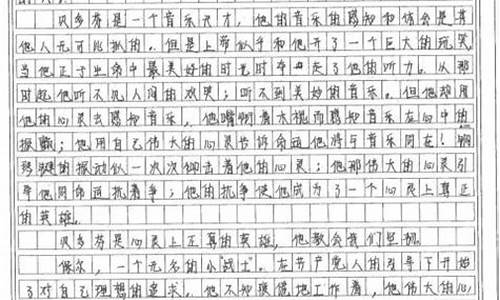 贝多芬是一个音乐天才，他的音乐的感知和体会是旁
他人无可比拟的。但是上帝似乎和他开了一个巨大的玩笑
当他正于生命中最美好的时光时夺走了他的听力。从那
时起他听不见人间的欢笑；听不到美妙的音乐。但他却用
他的心灵去感知音乐，他嘴啣着木棍而感知音乐在心中的
振颤；他用自己伟大的心灵告诉命运他将与音乐同在！钢
琴键的振动似一次次叩击着他的心灵；他那伟大的心灵引
导他同命运抗着争；他的抗争使他成为了一个心灵上真正
的英雄。
贝多芬是心灵上正真的英雄，他教会我们坚韧。
保尔，一个无名的小"战士"。在共产党人的引导下开始
了对自己理想的追求。他不知疲倦地工作着，他伟大的心